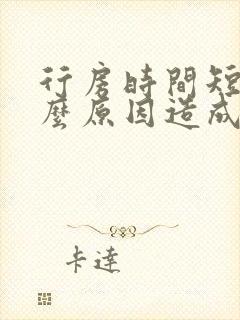 行房時間短
麼原因造成
卡達